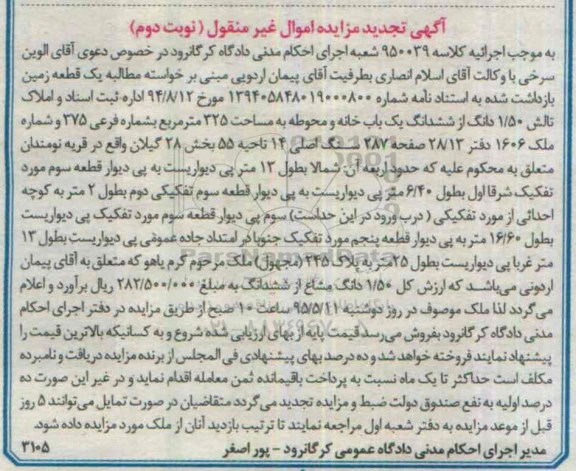 آگهی تجدید مزایده اموال غیر منقول (نوبت دوم)
به موجب اجرائیه کلاسه ۹۵۰۰۳۹ شعبه اجرای احکام مدنی دادگاه کرگانرود در خصوص دعوی آقای الوین
سرخی با وکالت آقای اسلام انصاری بطرفیت آقای پیمان اردویی مبنی بر خواسته مطالبه یک قطعه زمین
بازداشت شده به استناد نامه شماره ۱۳۹۴۰۵۸۴۸۰۱۹۰۰۰۸۰۰ مورخ ۹۴/۸/۱۲ اداره ثبت اسناد و املاک
تالش ۱/۵۰ دانگ از ششدانگ یک باب خانه و محوطه به مساحت ۳۲۵ مترمربع بشماره فرعی ۳۷۵ و شماره
ملک ۱۶۰۶ دفتر ۲۸/۱۳ صفحه ۲۸۷ سنگ اصلی ۱۴ ناحیه ۵۵ بخش ۲۸ گیلان واقع در قریه نومندان
متعلق به محکوم علیه که حدود اربعه آن: شمالا بطول ۱۳ متر پی دیواریست به پی دیوار قطعه سوم مورد
تفکیک شرقا اول بطول ۶/۴۰ متر پی دیواریست به پی دیوار قطعه سوم تفکیکی دوم بطول ۲ متر به کوچه
احداثی از مورد تفکیکی (درب ورود در این حداست) سوم پی دیوار قطعه سوم مورد تفکیک پی دیواریست
بطول ۱۶/۶۰ متر به پی دیوار قطعه پنجم مورد تفکیک جنوبا در امتداد جاده عمومی پی دیواریست بطول ۱۳
متر غربا پی دیواریست بطول ۲۵ متر به پلاک ۲۴۵ (مجهول) ملک مرحوم کرم یاهو که متعلق به آقای پیمان
اردونی می‌باشد که ارزش کل ۱/۵۰ دانگ مشاع از ششدانگ به مبلغ ۲۸۲/۵۰۰/۰۰۰ ریال برآورد و اعلام
می‌گردد لذا ملک موصوف در روز دوشنبه ۹۵/۵/۱۱ ساعت ۱۰ صبح از طریق مزایده در دفتر اجرای احکام
مدنی دادگاه کرگانرود بفروش می‌رسد قیمت پایه از بهای ارزیابی شده شروع و به کسانیکه بالاترین قیمت را
پیشنهاد نمایند فروخته خواهد شد و ده درصد بهای پیشنهادی فی المجلس از برنده مزایده دریافت و نامبرده
مکلف است حداکثر تا یک ماه نسبت به پرداخت باقیمانده ثمن معامله اقدام نماید و در غیر این صورت ده
درصد اولیه به نفع صندوق دولت ضبط و مزایده تجدید می‌گردد متقاضیان در صورت تمایل می‌توانند ۵ روز
قبل از موعد مزایده به دفتر شعبه اول مراجعه نمایند تا ترتیب بازدید آنان از ملک مورد مزایده داده شود.
مدیر اجرای احکام مدنی دادگاه عمومی کرگانرود - پور اصغر ۳۱۰۵